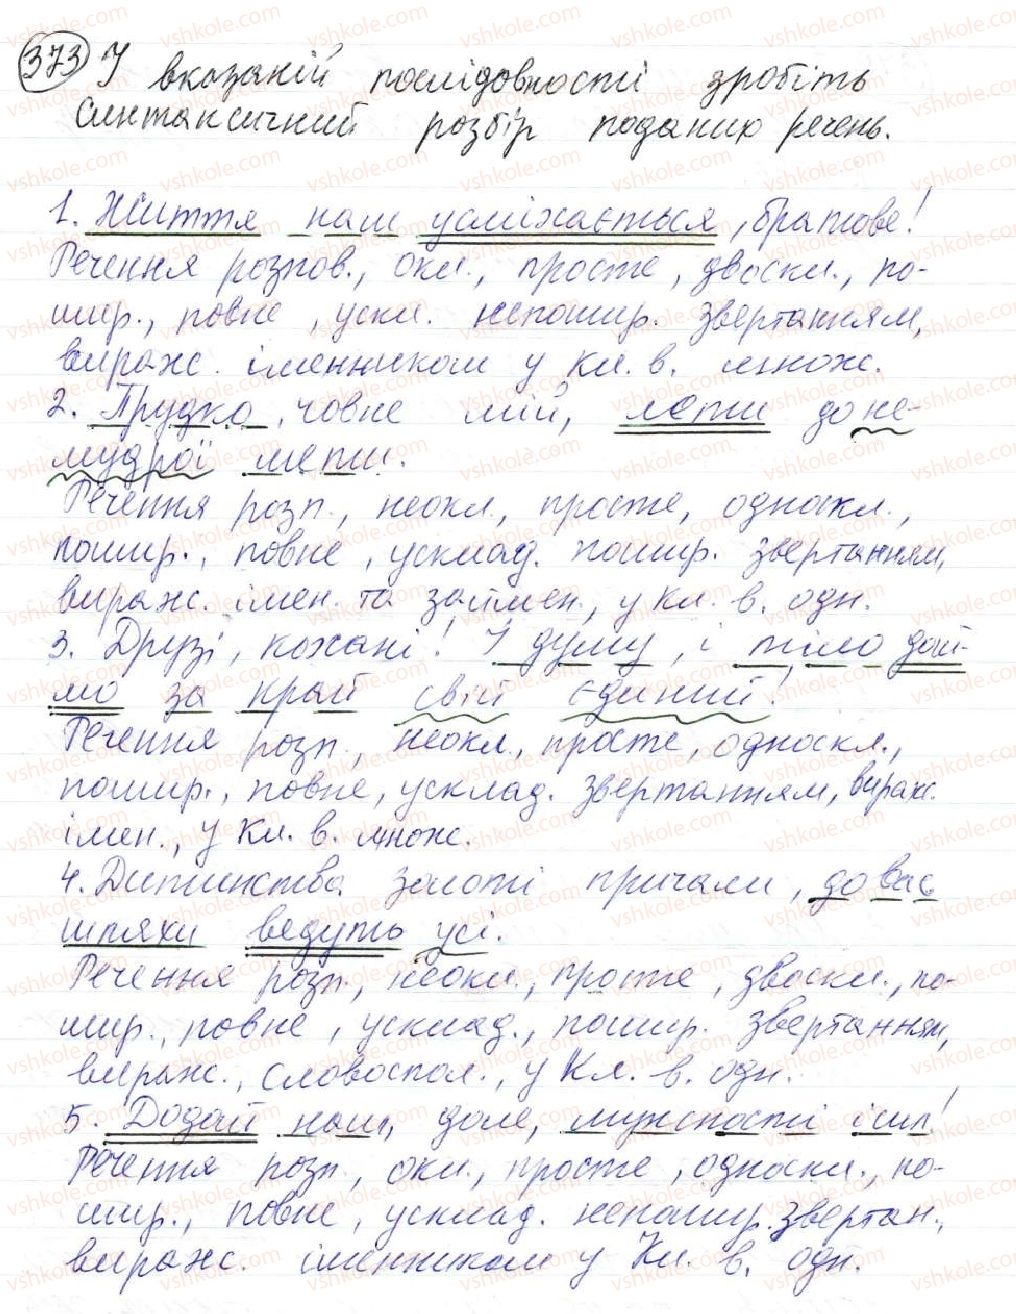 373 У вказаній послідовності зробіть
синтаксичний розбір поданих речень.
1. Життя нам усміхається, братове!
Речення розпов., окл., просте, двоскл., по-
шир., повне,ускл. непошир. звертанням,
вираж. іменником у Кл. в. множ.
2. Прудко, човне мій, лети до не-
мудрої мети.
Речення розп., неокл., просте, односкл.,
пошир., повне, усклад. пошир. звертанням,
вираж. імен. та займен., у Кл. в. одн.
3. Друзі, кохані! І думу, і тіло дай-
мо за край свій єдиний!
Речення розп., неокл., просте, односкл.,
пошир., повне, усклад. звертанням, вираж.
імен., у Кл. в. множ.
4. Дитинства золоті причали, до вас
шляхи ведуть усі.
Речення розп., неокл., просте, двоскл., по-
шир., повне, усклад., пошир. звертанням,
вираж., словоспол., у Кл. в. одн.
5. Додай нам, доле, мужності і сил!
Речення розп., окл., просте, односкл., по-
шир., повне, усклад. непошир. звертан.,
вираж. іменником у Кл. в. одн.